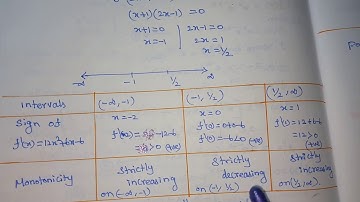 (x+1)(2x-1) = 0
x+1=0 | 2x-1=0
x=-1 | 2x=1
x=1/2
-∞ -1 1/2 ∞
Intervals (-∞,-1) (-1,1/2) (1/2,∞)
Sign of x=-2 x=0 x=1
f'(x)=12x²+6x-6 f'(0)=0+0-6 f'(1)=12+6-6
=-6<0 =12>0
(+ve)
Monotonicity Strictly increasing on(-∞,-1) Strictly decreasing on(-1,1/2) Strictly increasing on(1/2,∞)